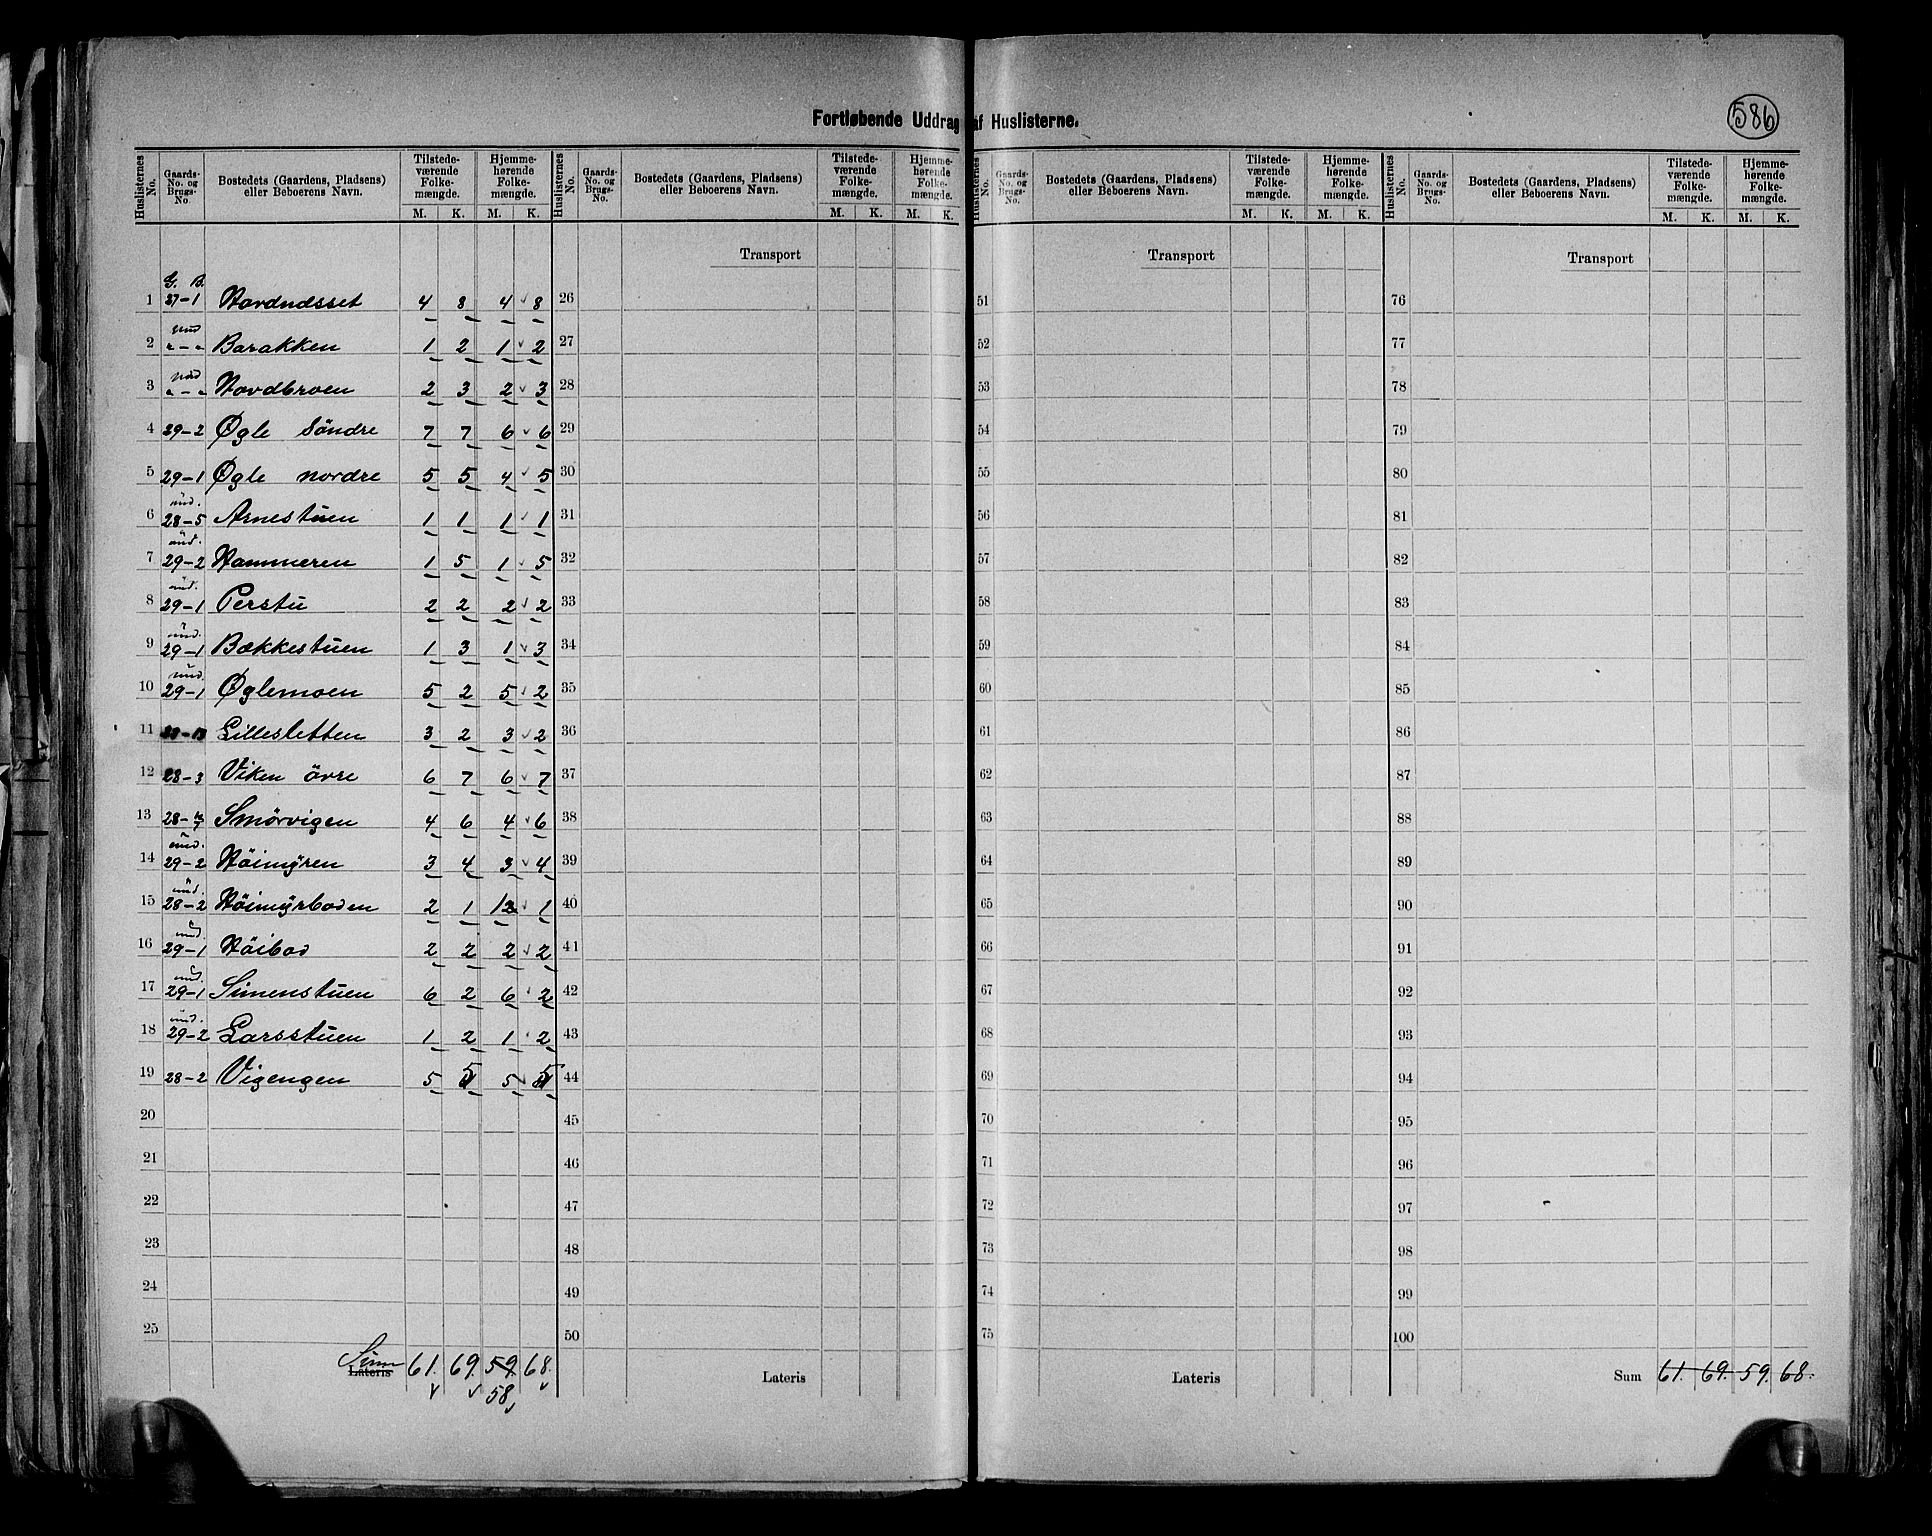 586
Fortløbende Uddrag af Huslisterne.
Huslisternes No. Gaards-No. og Brugs-No. Bostedets (Gaardens, Pladsens) eller Beboerens Navn. Tilstedeværende Folkemængde. M. K. Hjemmehørende Folkemængde. M. K.
Huslisternes No. Gaards-No. og Brugs-No. Bostedets (Gaardens, Pladsens) eller Beboerens Navn. Tilstedeværende Folkemængde. M. K. Hjemmehørende Folkemængde. M. K.
Huslisternes No. Gaards-No. og Brugs-No. Bostedets (Gaardens, Pladsens) eller Beboerens Navn. Tilstedeværende Folkemængde. M. K. Hjemmehørende Folkemængde. M. K.
Huslisternes No. Gaards-No. og Brugs-No. Bostedets (Gaardens, Pladsens) eller Beboerens Navn. Tilstedeværende Folkemængde. M. K. Hjemmehørende Folkemængde. M. K.
Transport Transport Transport
G. B.
1 37-1 Nordnæsset 4 8 4 8 26 51 76
und
2 "-" Barakken 1 2 1 2 27 52 77
und
3 "-" Nordbroen 2 3 2 3 28 53 78
4 29-2 Øgle Söndre 7 7 6 6 29 54 79
5 29-1 Øgle nordre 5 5 4 5 30 55 80
und.
6 28-5 Arnestuen 1 1 1 1 31 56 81
und.
7 29-2 Hammeren 1 5 1 5 32 57 82
und.
8 29-1 Perstu 2 2 2 2 33 58 83
und.
9 29-1 Bækkestuen 1 3 1 3 34 59 84
und.
10 29-1 Øglemoen 5 2 5 2 35 60 85
11 Lillesletten 3 2 3 2 36 61 86
12 28-3 Viken övre 6 7 6 7 37 62 87
13 28- Smörvigen 4 6 4 6 38 63 88
und.
14 29-2 Höimyren 3 4 3 4 39 64 89
und.
15 28-2 Höimyrboden 2 1 1 1 40 65 90
und.
16 29-1 Höibod 2 2 2 2 41 66 91
und.
17 29-1 Simenstuen 6 2 6 2 42 67 92
und.
18 29-2 Larsstuen 1 2 1 2 43 68 93
19 28-2 Vigengen 5 5 5 5 44 69 94
20 45 70 95
21 46 71 96
22 47 72 97
23 48 73 98
24 49 74 99
25 50 75 100
Sum
Lateris 61. 69. 59. 68. Lateris Lateris Sum 61. 69. 59. 68.
58